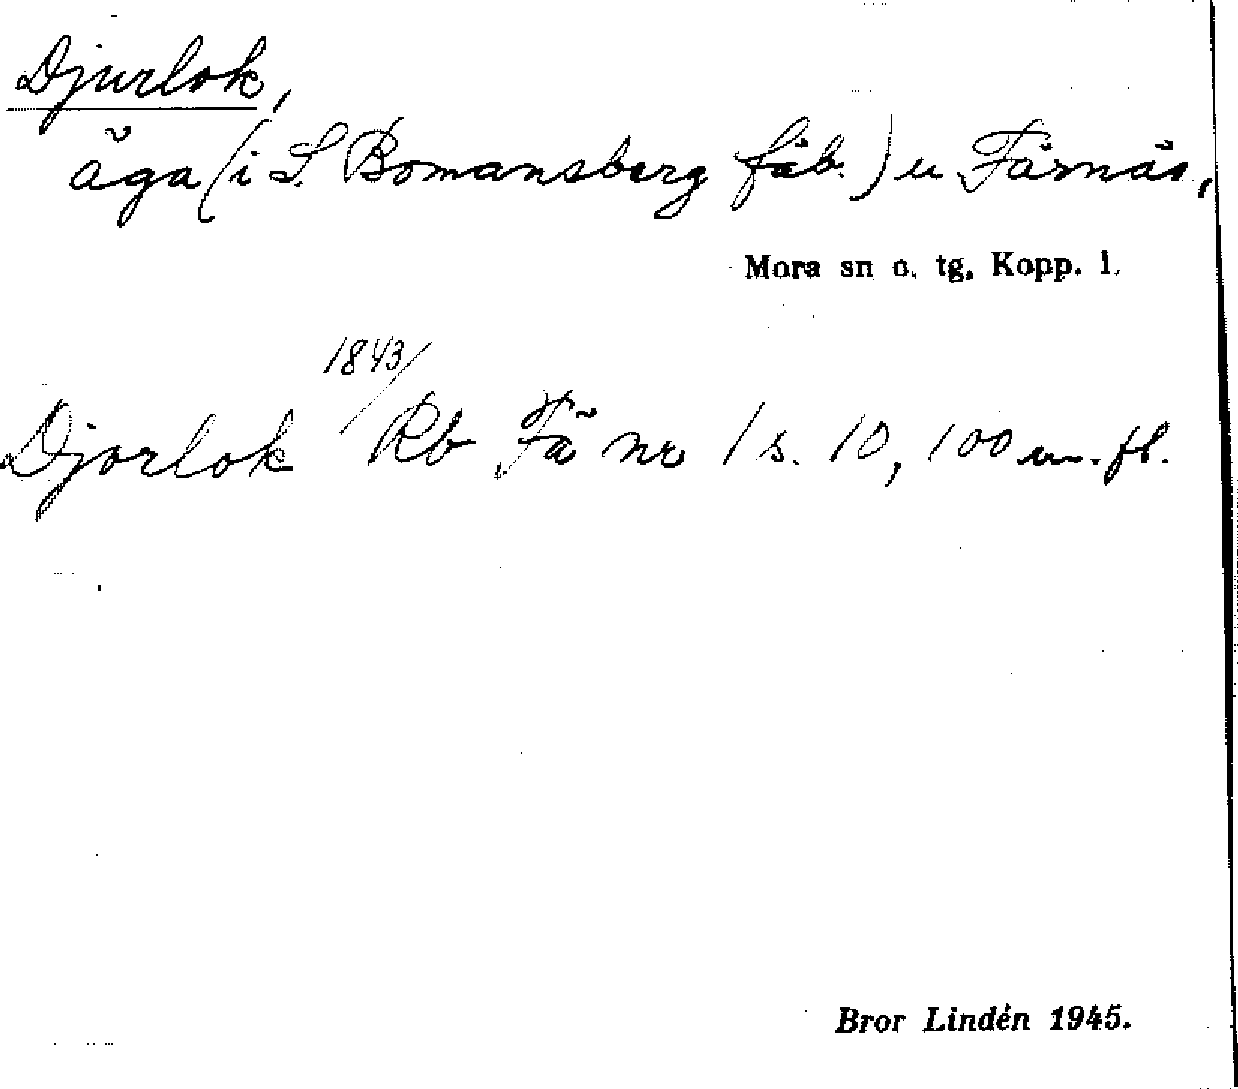 Djurlok,
äga (i S. Bomansberg fäb.) u Färnäs,
Mora sn o. tg, Kopp. l.
Djorlok 1843/ Rb Fä nr 1 s. 10, 100 m. fl.
Bror Lindén 1945.